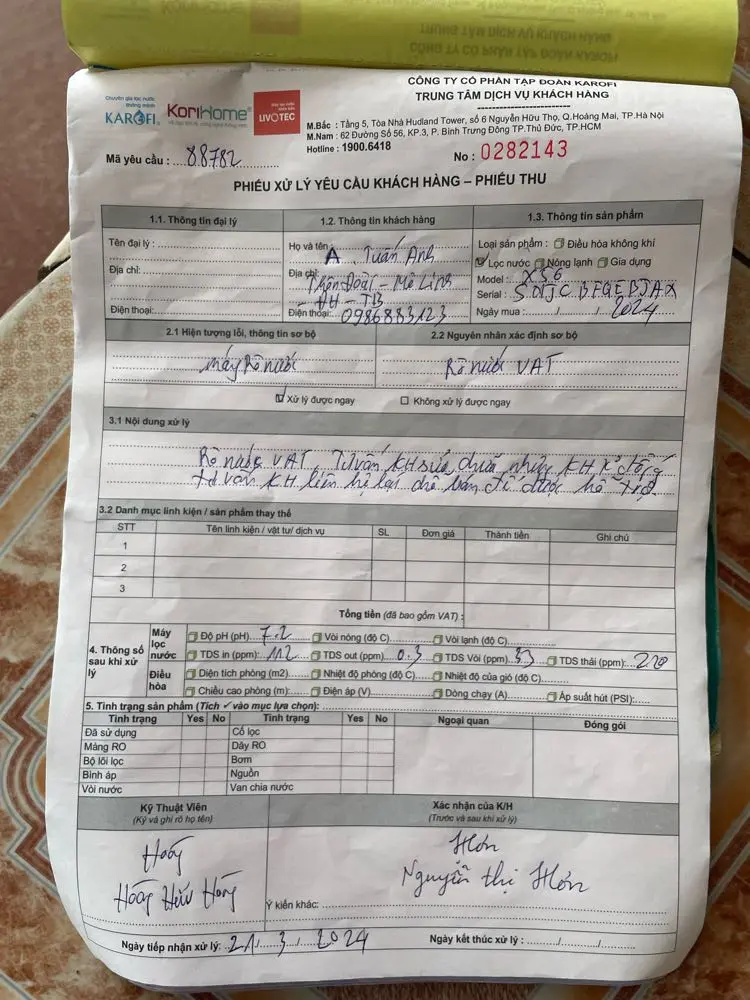 CÔNG TY CỔ PHẦN TẬP ĐOÀN KAROFI
TRUNG TÂM DỊCH VỤ KHÁCH HÀNG
Chuyên gia lọc nước thông minh
KAROFI KoriHome LIVOTEC
M.Bắc : Tầng 5, Tòa Nhà Hudland Tower, số 6 Nguyễn Hữu Thọ, Q.Hoàng Mai, TP.Hà Nội
M.Nam : 62 Đường Số 56, KP.3, P. Bình Trưng Đông TP.Thủ Đức, TP.HCM
Hotline : 1900.6418
Mã yêu cầu : 88782
No : 0282143
PHIẾU XỬ LÝ YÊU CẦU KHÁCH HÀNG – PHIẾU THU
1.1. Thông tin đại lý
Tên đại lý :
Địa chỉ:
Điện thoại:
1.2. Thông tin khách hàng
Họ và tên A. Tuấn Anh
Địa chỉ: Thôn Đoài - Mê Linh
- ĐH - TB
Điện thoại: 0986883123
1.3. Thông tin sản phẩm
Loại sản phẩm : Điều hòa không khí
Lọc nước Nóng lạnh Gia dụng
Model : XS6
Serial :
Ngày mua : / / 2024
2.1 Hiện tượng lỗi, thông tin sơ bộ
máy Rò nước
2.2 Nguyên nhân xác định sơ bộ
Rò nước VAT
Xử lý được ngay Không xử lý được ngay
3.1 Nội dung xử lý
Rò nước VAT. Tư vấn KH sửa chữa nhưng KH k° đồng ý
tư vấn KH liên hệ lại chỗ bán để được hỗ trợ.
3.2 Danh mục linh kiện / sản phẩm thay thế
STT Tên linh kiện / vật tư/ dịch vụ SL Đơn giá Thành tiền Ghi chú
1
2
3
Tổng tiền (đã bao gồm VAT) :
4. Thông số sau khi xử lý
Máy lọc nước
Độ pH (pH) 7.2 Vòi nóng (độ C) Vòi lạnh (độ C)
TDS in (ppm): 112 TDS out (ppm) 0.3 TDS Vòi (ppm) 33 TDS thải (ppm): 220
Điều hòa
Diện tích phòng (m2) Nhiệt độ phòng (độ C) Nhiệt độ của gió (độ C)
Chiều cao phòng (m): Điện áp (V) Dòng chạy (A) Áp suất hút (PSI):
5. Tình trạng sản phẩm (Tích ✓ vào mục lựa chọn):
Tình trạng Yes No Tình trạng Yes No Ngoại quan Đóng gói
Đã sử dụng Cốc lọc
Màng RO Dây RO
Bộ lõi lọc Bơm
Bình áp Nguồn
Vòi nước Van chia nước
Kỹ Thuật Viên
(Ký và ghi rõ họ tên)
Xác nhận của K/H
(Trước và sau khi xử lý)
Hơn
Nguyễn thị Hơn
Ý kiến khác:
Ngày tiếp nhận xử lý: 21 / 3 / 2024 Ngày kết thúc xử lý : / /